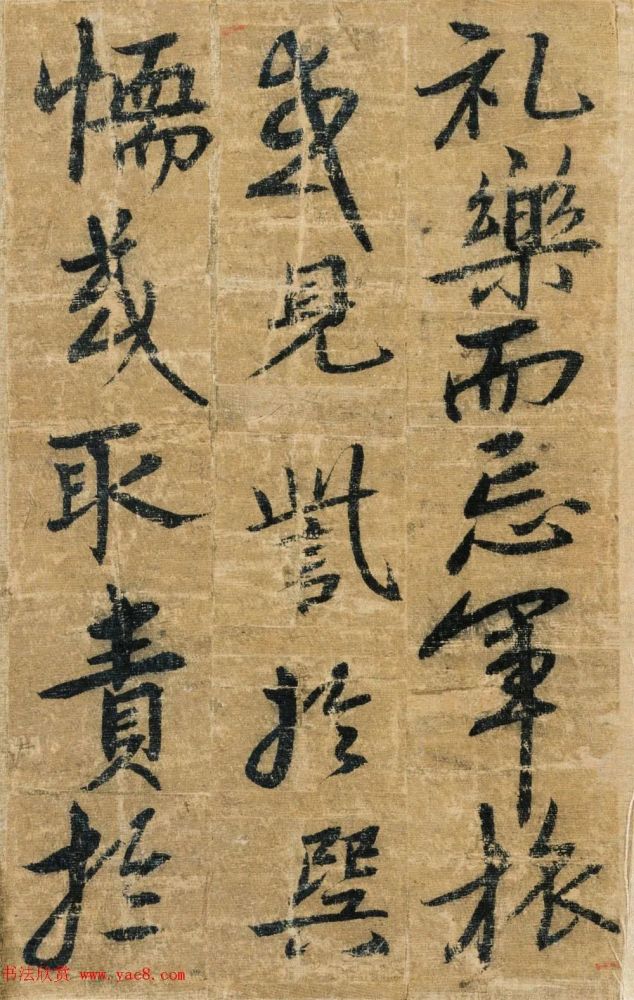 礼樂而忘軍旅
或見於巽
懦或取責於
书法欣赏 www.yac8.com